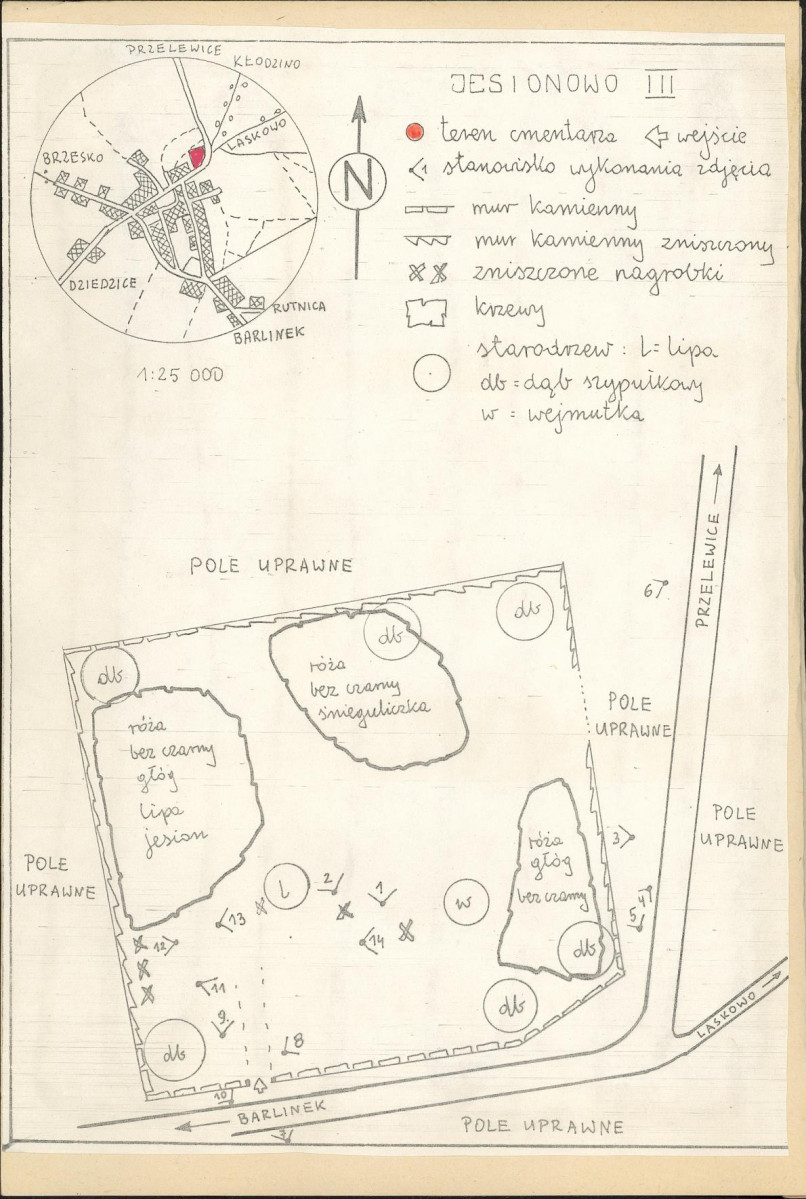 PRZELEWICE
KŁODZINO
LASKOWO
BRZESKO
DZIEDZICE
RUTNICA
BARLINEK
1:25 000
N
JESIONOWO III
teren cmentarza wejście
1 stanowisko wykonania zdjęcia
mur kamienny
mur kamienny zniszczony
zniszczone nagrobki
krzewy
starodrzew : l = lipa
db = dąb szypułkowy
w = wejmutka
POLE UPRAWNE
PRZELEWICE
6
db
db
db
róża
bez czarny
śnieguliczka
róża
bez czarny
głóg
lipa
jesion
POLE
UPRAWNE
POLE
UPRAWNE
POLE
UPRAWNE
3
róża
głóg
bez czarny
l
2
1
w
4
5
13
14
12
db
11
9
8
db
db
10
LASKOWO
BARLINEK
7
POLE UPRAWNE